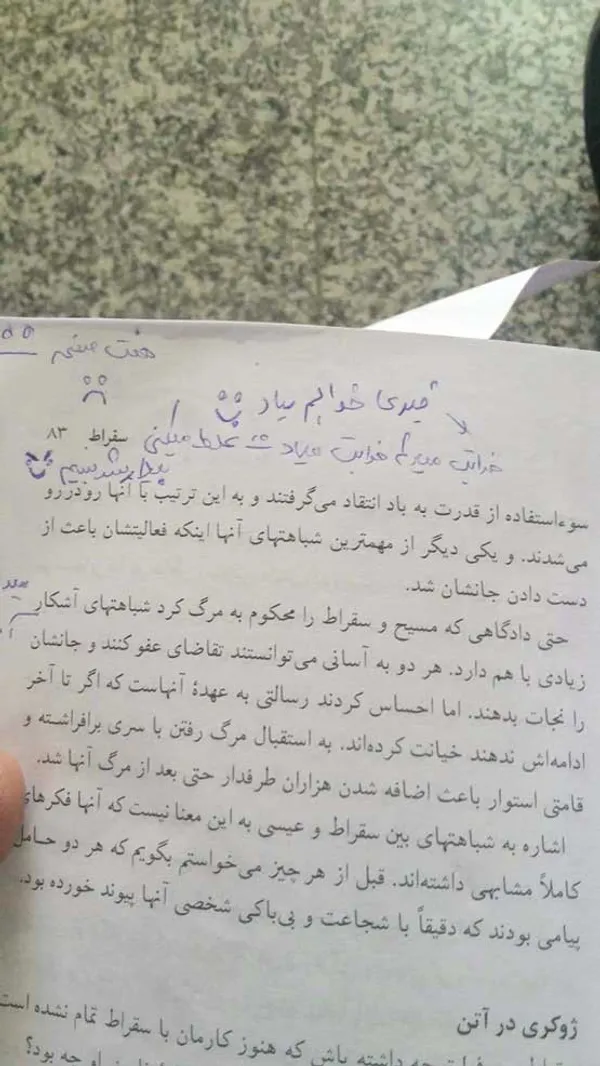 هفت صفحه
قیدی خوابم میاد
خوابت میاد؟ خوابت میاد غلط میکنی
سقراط ۸۳
سوءاستفاده از قدرت به باد انتقاد می‌گرفتند و به این ترتیب با آنها رودررو
می‌شدند. و یکی دیگر از مهمترین شباهتهای آنها اینکه فعالیتشان باعث از
دست دادن جانشان شد.
حتی دادگاهی که مسیح و سقراط را محکوم به مرگ کرد شباهتهای آشکار
زیادی با هم دارد. هر دو به آسانی می‌توانستند تقاضای عفو کنند و جانشان
را نجات بدهند. اما احساس کردند رسالتی به عهدهٔ آنهاست که اگر تا آخر
ادامه‌اش ندهند خیانت کرده‌اند. به استقبال مرگ رفتن با سری برافراشته و
قامتی استوار باعث اضافه شدن هزاران طرفدار حتی بعد از مرگ آنها شد.
اشاره به شباهتهای بین سقراط و عیسی به این معنا نیست که آنها فکرهای
کاملاً مشابهی داشته‌اند. قبل از هر چیز می‌خواستم بگویم که هر دو حامل
پیامی بودند که دقیقاً با شجاعت و بی‌باکی شخصی آنها پیوند خورده بود.
ژوکری در آتن
توجه داشته باش که هنوز کارمان با سقراط تمام نشده است
او چه بود؟